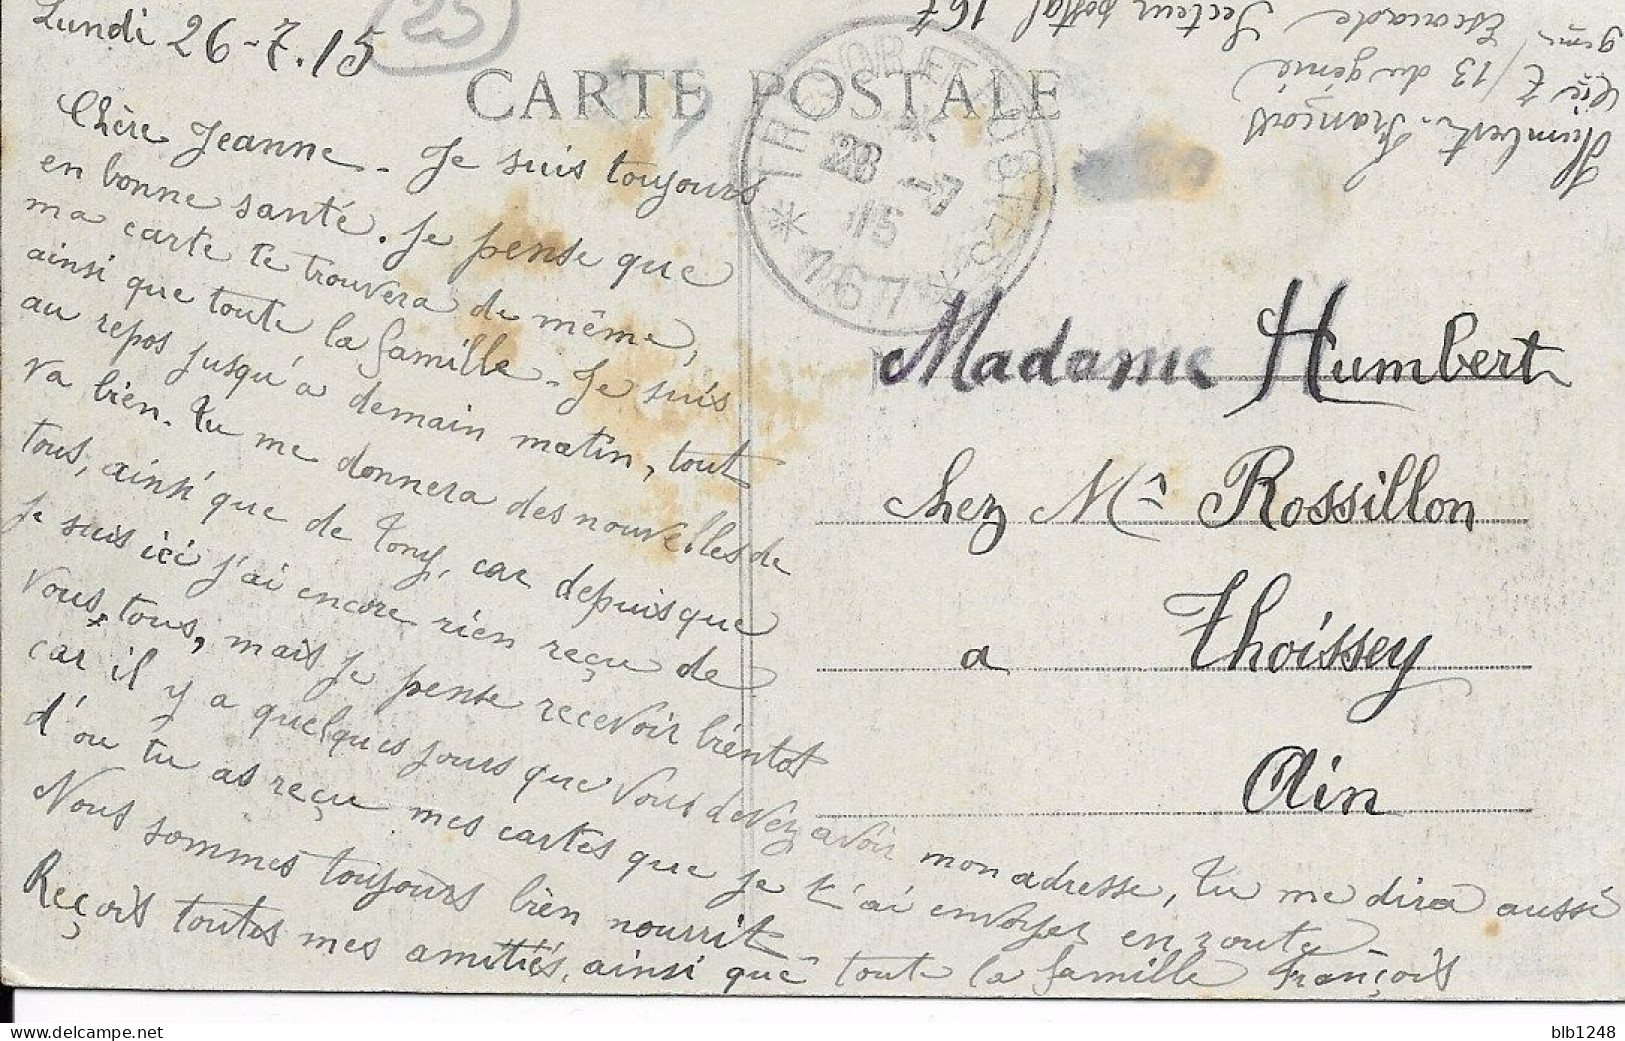 Lundi 26-7.15
25
CARTE POSTALE
Chère Jeanne - Je suis toujours
en bonne santé. Je pense que
ma carte te trouvera de même,
ainsi que toute la famille - Je suis
au repos jusqu'a demain matin, tout
va bien. Tu me donnera des nouvelles de
tous, ainsi que de Tony, car depuis que
je suis ici j'ai encore rien reçu de
vous, tous, mais je pense recevoir bientot
car il y a quelques jours que vous devez avoir mon adresse, tu me dira aussi
d'ou tu as reçu mes cartes que je t'ai envoyer en route -
Nous sommes toujours bien nourrit
Reçois toutes mes amitiés, ainsi que toute la famille François
TRESOR ET POSTES
28 -7
15
* 167 *
Humbert. François
Cie 7/13 du génie
9eme Escouade Secteur postal 167
Madame Humbert
chez Mr Rossillon
a Thoissey
Ain
blb1248